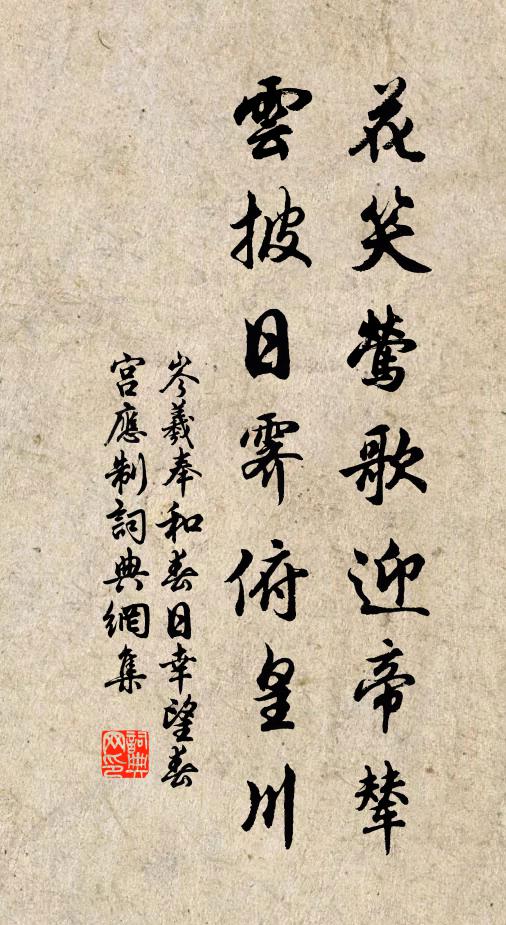 花笑鶯歌迎帝輦
雲披日霽俯皇川
岑羲奉和春日幸望春
宮應制詞典網集
詞典
网印